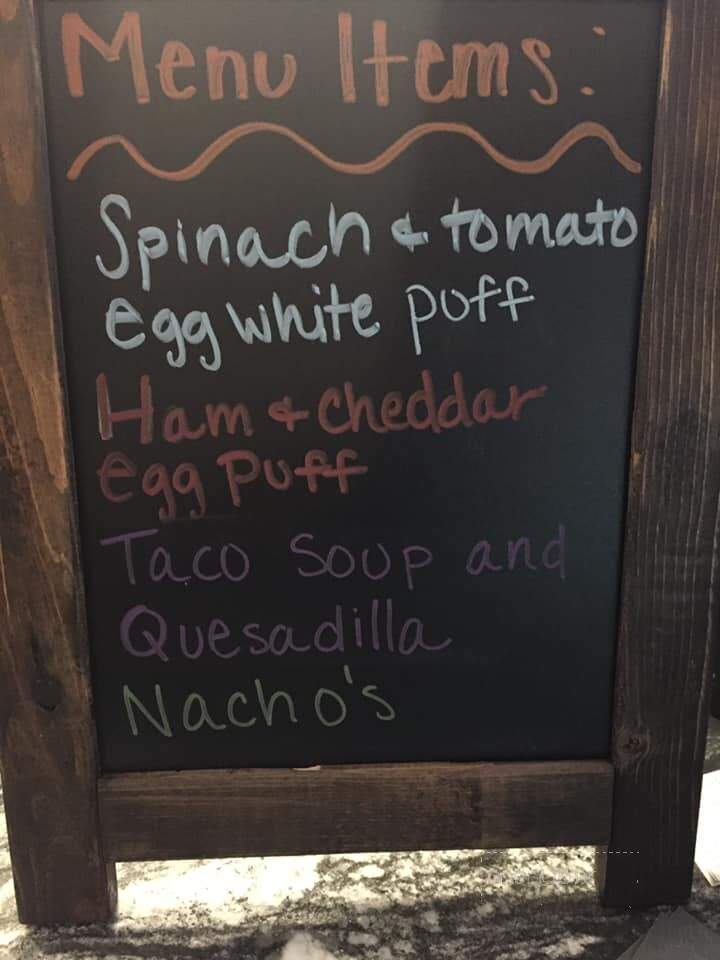 Menu Items:
Spinach & tomato
egg white puff
Ham & cheddar
egg puff
Taco Soup and
Quesadilla
Nacho's